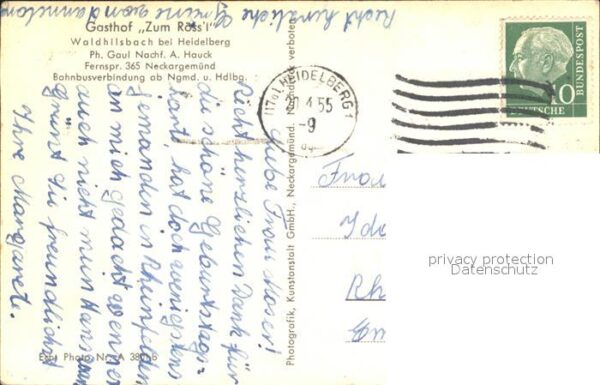 Gasthof „Zum Röss'l"
Waldhilsbach bei Heidelberg
Ph. Gaul Nachf. A. Hauck
Fernspr. 365 Neckargemünd
Bahnbusverbindung ab Ngmd. u. Hdlbg.
Echt Photo Nr. A
Photografik, Kunstanstalt GmbH., Neckargemünd. Nachdruck verboten
Liebe Frau Moser!
Recht herzlichen Dank für
die schöne Geburtstags-
kart, hat doch wenigstens
jemanden in Rheinfelden
an mich gedacht wenner
auch nicht mein
Grüsst Sie freundlichst
Ihre Margaret.
Recht herzliche Grüsse
(17a) HEIDELBERG 1
20.4.55
-9
10
DEUTSCHE
BUNDESPOST
Frau
Ida
Rh
privacy protection
Datenschutz